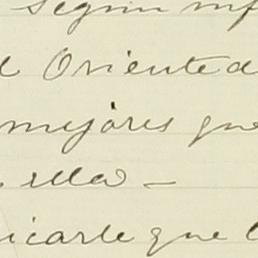 Segun inf
l Oriente d
mejores que
ella —
icarle que l